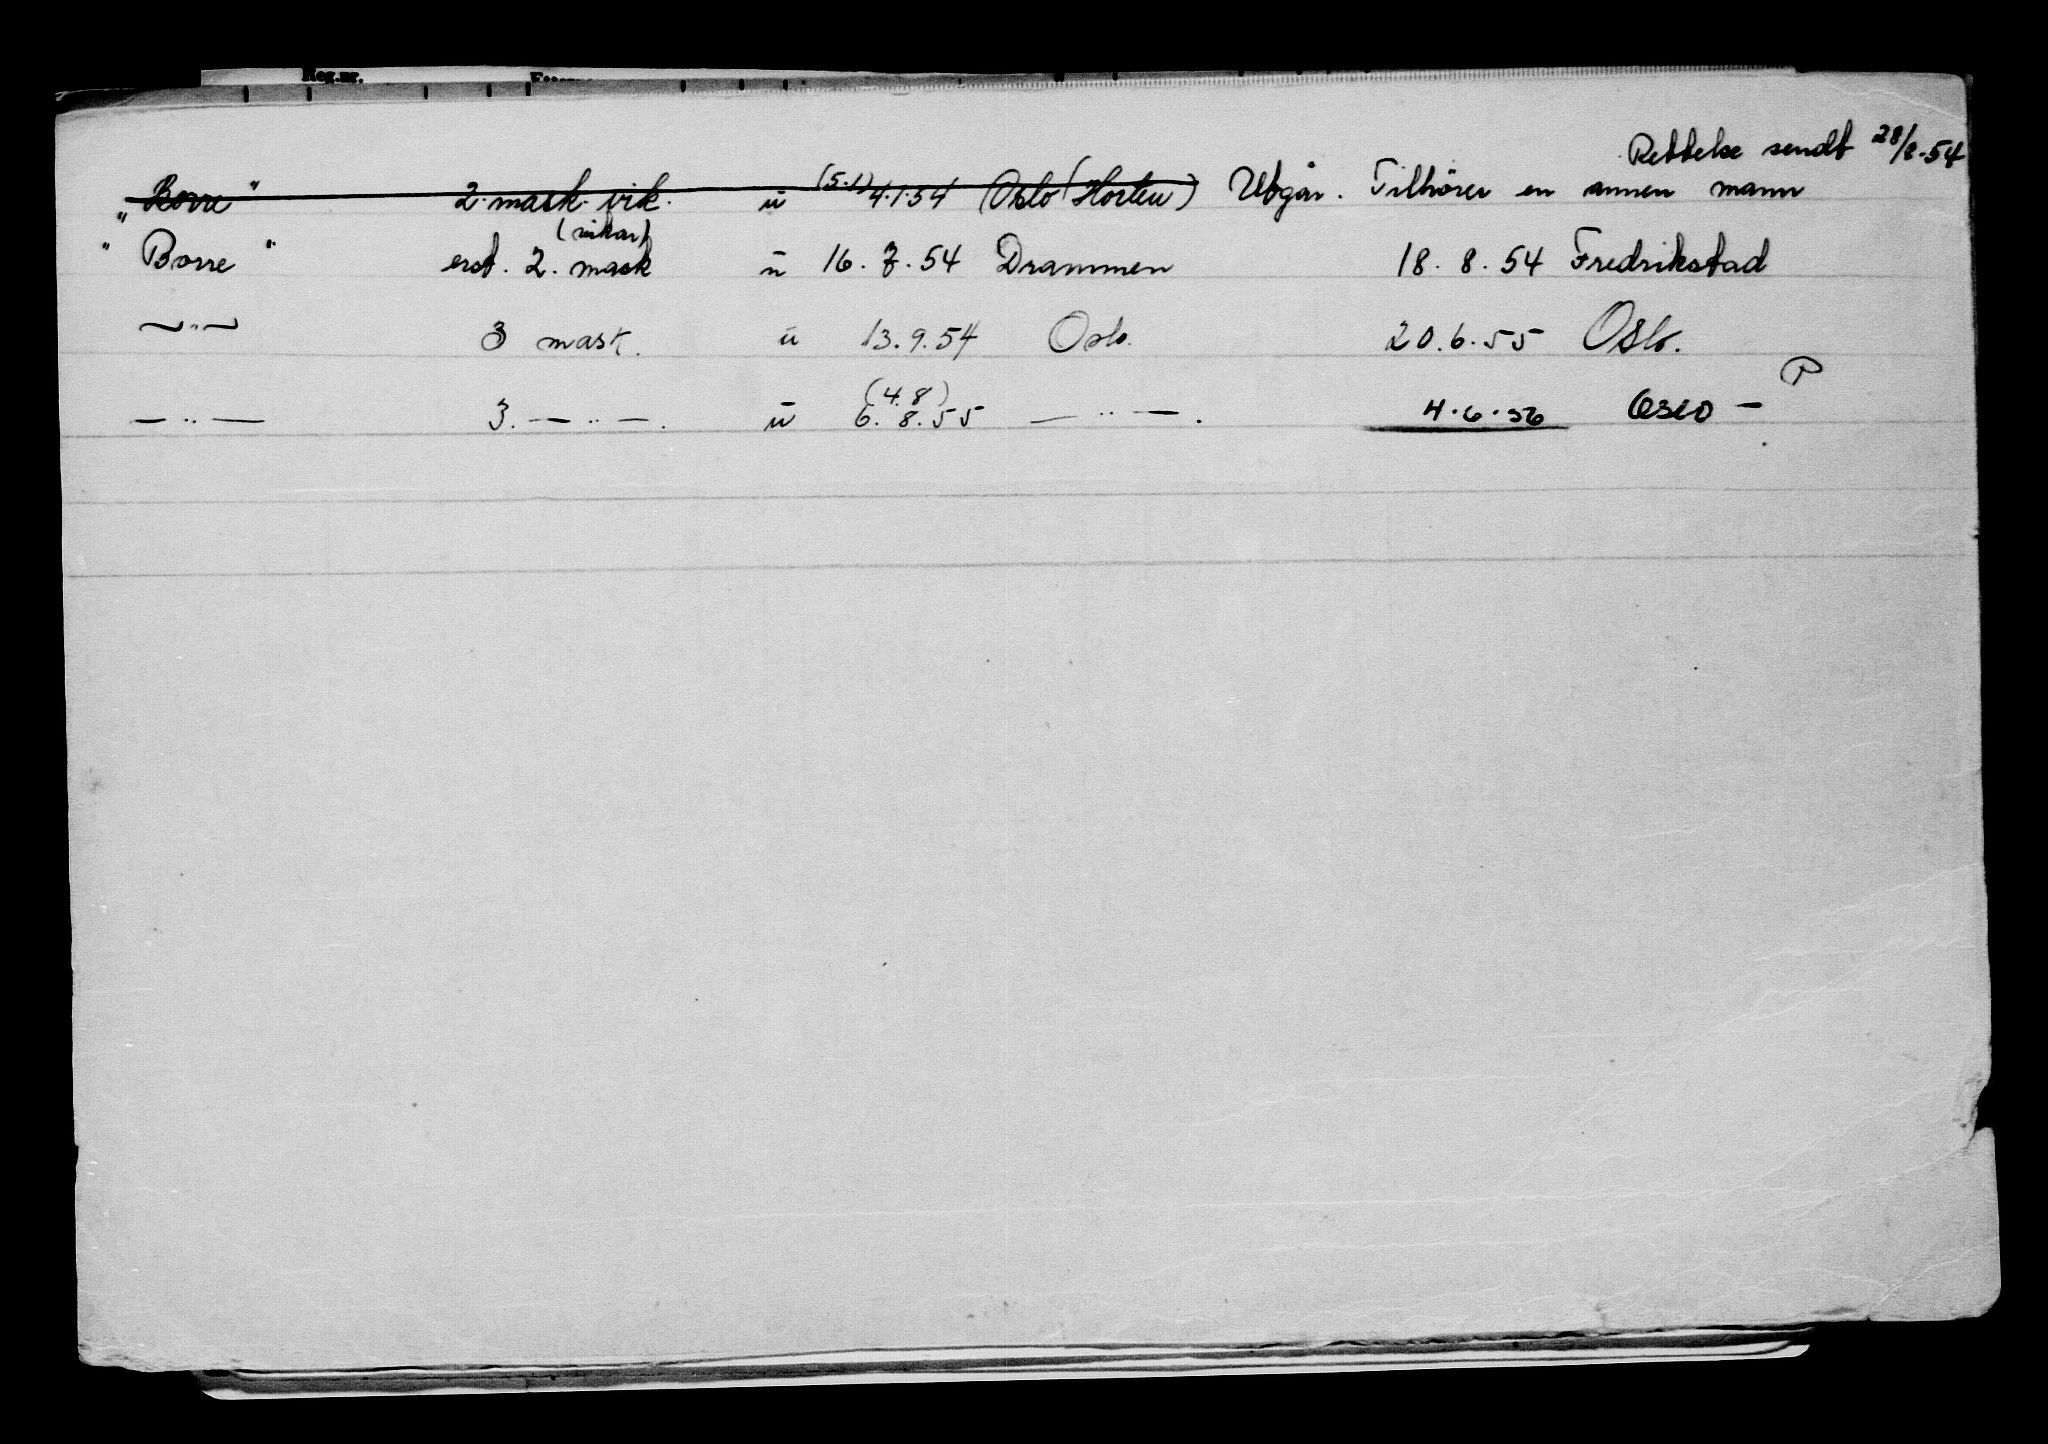 Reg.nr.
Rettelse sendt 28/8-54
„Borre" 2. mask. vik. u (5.1) 4.1.54 Oslo (Horten) Utgår. Tilhører en annen mann
"Borre" erst. 2. mask (vikar) u 16.7.54 Drammen 18.8.54 Fredrikstad
—"— 3 mask. u 13.9.54 Oslo. 20.6.55 Oslo.
—"— 3. —"—. u (4.8) 6.8.55 —"—. 4.6.56 OSLO – P